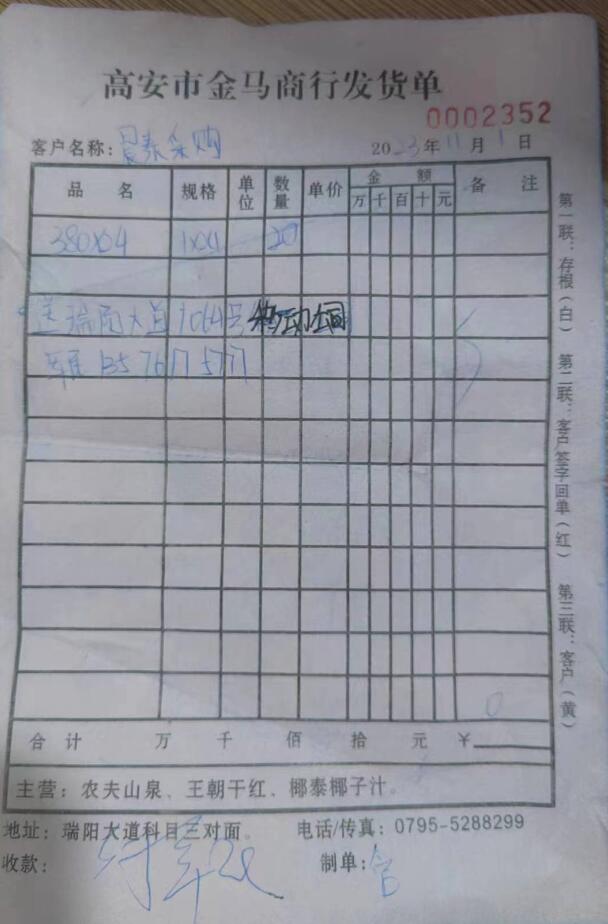 高安市金马商行发货单
0002352
客户名称: 晨泰采购 2023年11月1日
品名 规格 单位 数量 单价 金额 备注
万 千 百 十 元
380x04 1x 20
送瑞阳大道1064号
135 7617 5777
合计 万 千 佰 拾 元 ¥
主营：农夫山泉、王朝干红、椰泰椰子汁。
地址：瑞阳大道科目三对面。 电话/传真：0795-5288299
收款： 制单：
第一联：存根(白) 第二联：客户签字回单(红) 第三联：客户(黄)